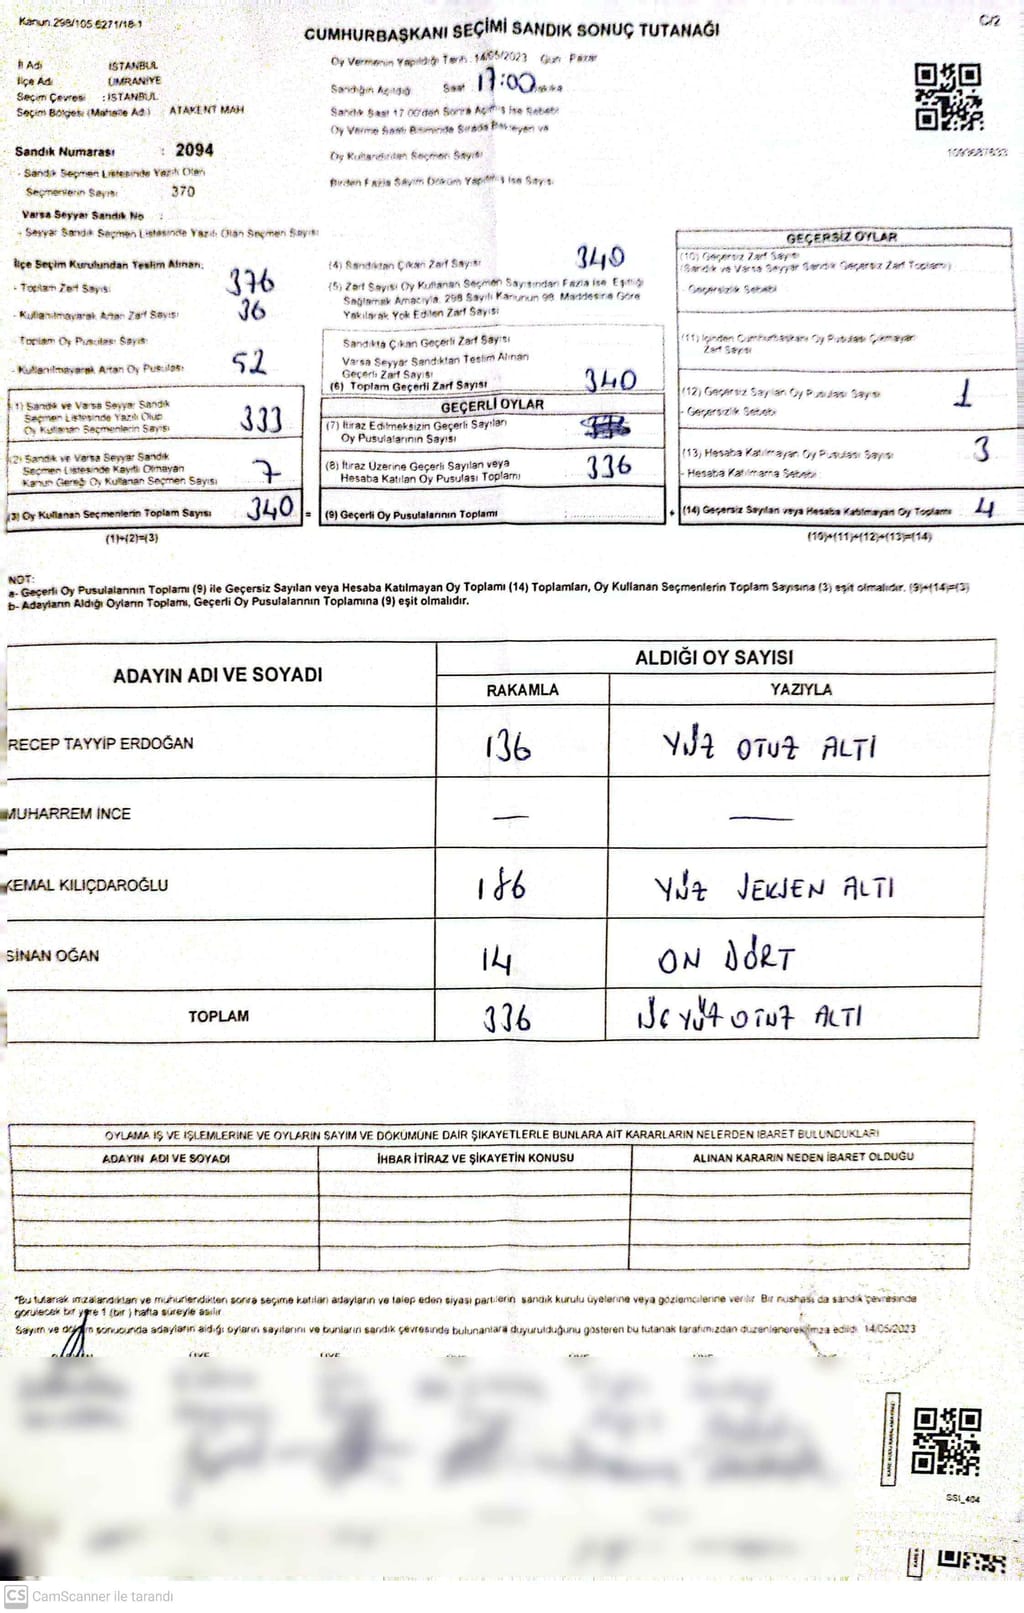 Kanun.298/105 6271/18-1
C/2
CUMHURBAŞKANI SEÇİMİ SANDIK SONUÇ TUTANAĞI
İl Adı İSTANBUL
İlçe Adı ÜMRANİYE
Seçim Çevresi : İSTANBUL
Seçim Bölgesi (Mahalle Ad.) ATAKENT MAH
Sandık Numarası : 2094
- Sandık Seçmen Listesinde Yazılı Olan
Seçmenlerin Sayısı 370
Varsa Seyyar Sandık No :
- Seyyar Sandık Seçmen Listesinde Yazılı Olan Seçmen Sayısı
Oy Vermenin Yapıldığı Tarih : 14/05/2023 Gün Pazar
Sandığın Açıldığı Saat 17:00 Dakika
Sandık Saat 17.00'den Sonra Açılmış İse Sebebi
Oy Verme Saati Bitiminde Sırada Bekleyen ve
Oy Kullandırılan Seçmen Sayısı
Birden Fazla Sayım Döküm Yapılmış İse Sayısı
1093687633
İlçe Seçim Kurulundan Teslim Alınan;
- Toplam Zarf Sayısı 376
- Kullanılmayarak Artan Zarf Sayısı 36
- Toplam Oy Pusulası Sayısı
- Kullanılmayarak Artan Oy Pusulası 52
(1) Sandık ve Varsa Seyyar Sandık
Seçmen Listesinde Yazılı Olup
Oy Kullanan Seçmenlerin Sayısı 333
(2) Sandık ve Varsa Seyyar Sandık
Seçmen Listesinde Kayıtlı Olmayan
Kanun Gereği Oy Kullanan Seçmen Sayısı 7
(3) Oy Kullanan Seçmenlerin Toplam Sayısı 340 =
(1)+(2)=(3)
(4) Sandıktan Çıkan Zarf Sayısı 340
(5) Zarf Sayısı Oy Kullanan Seçmen Sayısından Fazla İse Eşitliği
Sağlamak Amacıyla, 298 Sayılı Kanunun 98. Maddesine Göre
Yakılarak Yok Edilen Zarf Sayısı
Sandıkta Çıkan Geçerli Zarf Sayısı
Varsa Seyyar Sandıktan Teslim Alınan
Geçerli Zarf Sayısı
(6) Toplam Geçerli Zarf Sayısı 340
GEÇERLİ OYLAR
(7) İtiraz Edilmeksizin Geçerli Sayılan
Oy Pusulalarının Sayısı
(8) İtiraz Üzerine Geçerli Sayılan veya
Hesaba Katılan Oy Pusulası Toplamı 336
(9) Geçerli Oy Pusulalarının Toplamı +
GEÇERSİZ OYLAR
(10) Geçersiz Zarf Sayısı
(Sandık ve Varsa Seyyar Sandık Geçersiz Zarf Toplamı)
- Geçersizlik Sebebi
(11) İçinden Cumhurbaşkanı Oy Pusulası Çıkmayan
Zarf Sayısı
(12) Geçersiz Sayılan Oy Pusulası Sayısı 1
- Geçersizlik Sebebi
(13) Hesaba Katılmayan Oy Pusulası Sayısı 3
- Hesaba Katılmama Sebebi
(14) Geçersiz Sayılan veya Hesaba Katılmayan Oy Toplamı 4
(10)+(11)+(12)+(13)=(14)
NOT:
a- Geçerli Oy Pusulalarının Toplamı (9) ile Geçersiz Sayılan veya Hesaba Katılmayan Oy Toplamı (14) Toplamları, Oy Kullanan Seçmenlerin Toplam Sayısına (3) eşit olmalıdır. (9)+(14)=(3)
b- Adayların Aldığı Oyların Toplamı, Geçerli Oy Pusulalarının Toplamına (9) eşit olmalıdır.
ADAYIN ADI VE SOYADI
ALDIĞI OY SAYISI
RAKAMLA YAZIYLA
RECEP TAYYİP ERDOĞAN 136 YÜZ OTUZ ALTI
MUHARREM İNCE — —
KEMAL KILIÇDAROĞLU 186 YÜZ SEKSEN ALTI
SİNAN OĞAN 14 ON DÖRT
TOPLAM 336 ÜÇ YÜZ OTUZ ALTI
OYLAMA İŞ VE İŞLEMLERİNE VE OYLARIN SAYIM VE DÖKÜMÜNE DAİR ŞİKAYETLERLE BUNLARA AİT KARARLARIN NELERDEN İBARET BULUNDUKLARI
ADAYIN ADI VE SOYADI İHBAR İTİRAZ VE ŞİKAYETİN KONUSU ALINAN KARARIN NEDEN İBARET OLDUĞU
*Bu tutanak imzalandıktan ve mühürlendikten sonra seçime katılan adayların ve talep eden siyasi partilerin sandık kurulu üyelerine veya gözlemcilerine verilir. Bir nushası da sandık çevresinde
görülecek bir yere 1 (bir) hafta süreyle asılır.
Sayım ve döküm sonucunda adayların aldığı oyların sayılarını ve bunların sandık çevresinde bulunanlara duyurulduğunu gösteren bu tutanak tarafımızdan düzenlenerek imza edildi. 14/05/2023
SSI_404
CS CamScanner ile tarandı